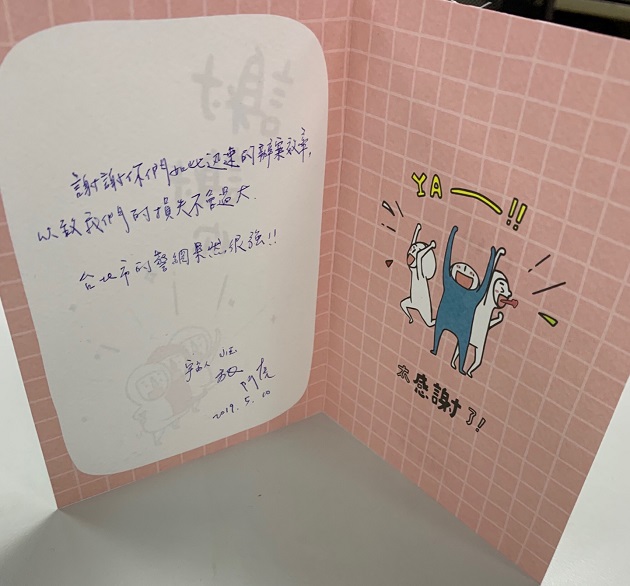 謝謝你們如此迅速的辦案效率,
以致我們的損失不會過大.
台北市的警網果然很強!!
2019. 5. 10
YA──!!
太感謝了!